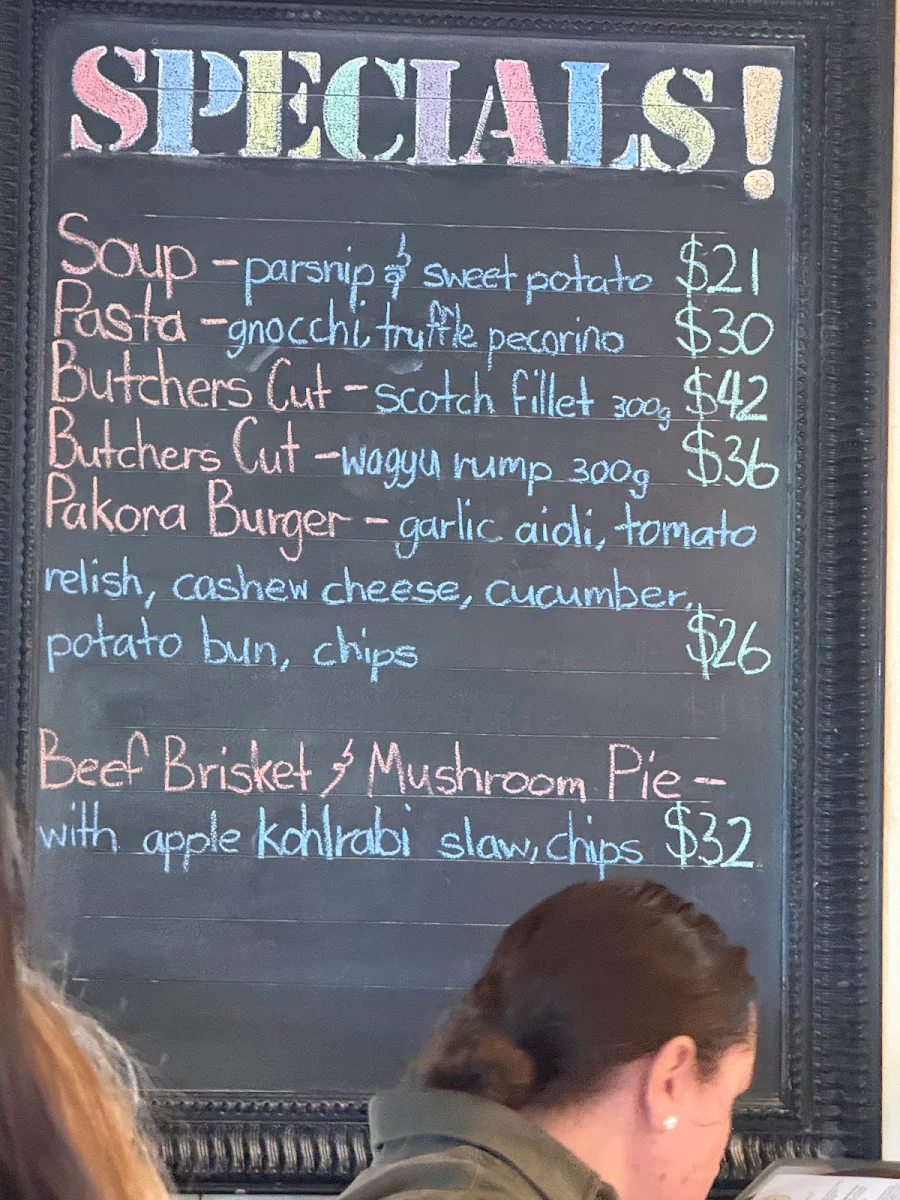 SPECIALS!
Soup - parsnip & sweet potato $21
Pasta - gnocchi, truffle pecorino $30
Butchers Cut - scotch fillet 300g $42
Butchers Cut - wagyu rump 300g $36
Pakora Burger - garlic aioli, tomato
relish, cashew cheese, cucumber,
potato bun, chips $26
Beef Brisket & Mushroom Pie -
with apple kohlrabi slaw, chips $32